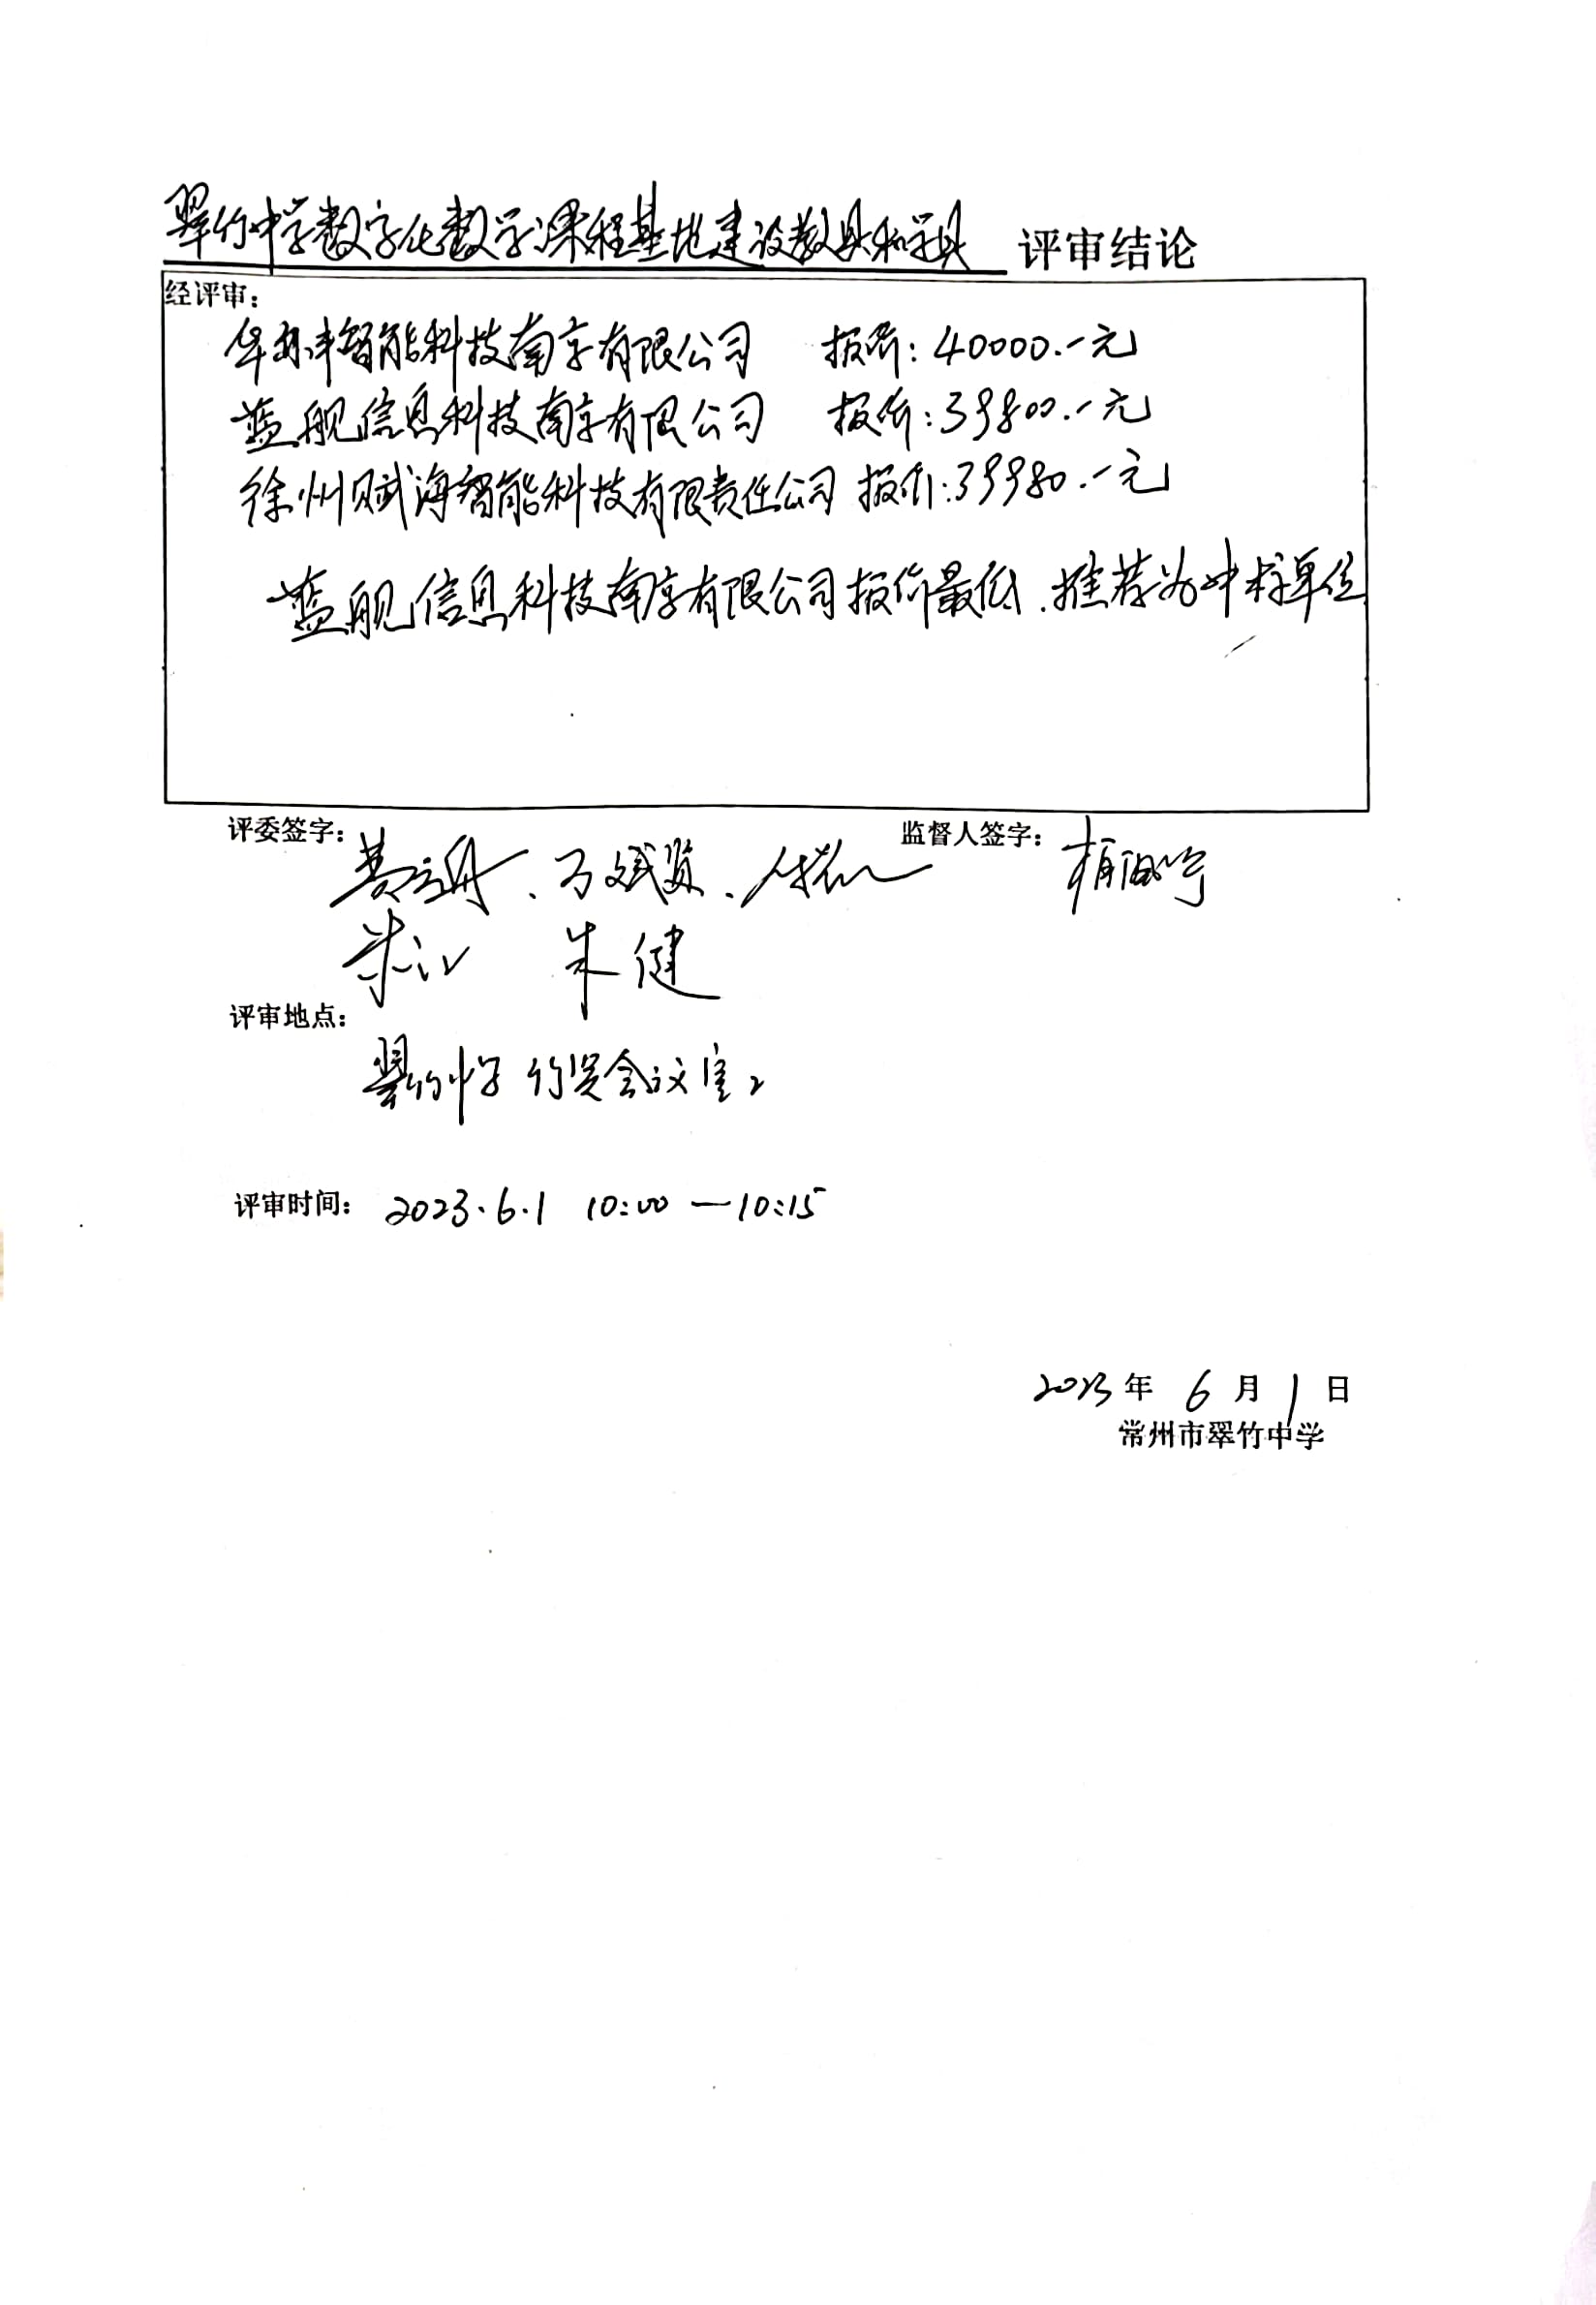 翠竹中学数字化数学课程基地建设教具和学具 评审结论
经评审：
华 智能科技南京有限公司 报价：40000.-元
蓝舰信息科技南京有限公司 报价：39800.-元
徐州赋海智能科技有限责任公司 报价：39980.-元
蓝舰信息科技南京有限公司报价最低．推荐为中标单位
评委签字： 监督人签字：
朱江 朱健
评审地点：
翠竹中学 竹 会议室2
评审时间： 2023.6.1 10:00 — 10:15
2023 年 6 月 1 日
常州市翠竹中学